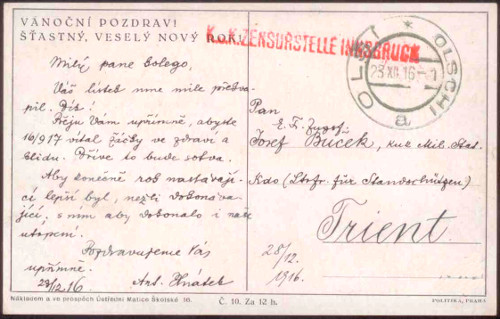 VÁNOČNÍ POZDRAV!
ŠŤASTNÝ, VESELÝ NOVÝ ROK!
K.u.K. ZENSURSTELLE INNSBRUCK
OLŠÍ * OLSCHI
23 XII 16
a
Milý pane kolego.
Váš lístek mne mile překva-
pil. Dík!
Přeju Vám upřímně, abyste
16/917 vítal žáčky ve zdraví a
klidu. Dříve to bude sotva.
Aby konečně rok nastávají-
cí lepší byl, nežli dokonáva-
jící; s ním aby dokonalo i naše
utopení.
Pozdravujeme Vás
upřímně.
23/12 16. Ant. Hnátek
Pan
E. F.
Josef Buček, kuk Mil. Stat.
Kdo (Lstrfr. für Standschützen)
Trient
28/12.
1916.
Nákladem a ve prospěch Ústřední Matice Školské 30.
Č. 10. Za 12 h.
POLITIKA, PRAHA